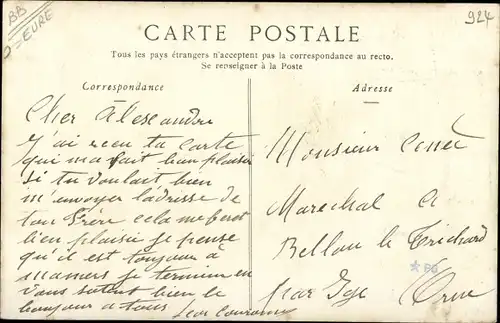 BB
D=EURE
924
CARTE POSTALE
Tous les pays étrangers n'acceptent pas la correspondance au recto.
Se renseigner à la Poste
Correspondance
Adresse
Cher Alexandre
J'ai recu ta carte
qui ma fait bien plaisir
Si tu voulait bien
m'envoyer ladresse de
ton Frère cela me ferat
bien plaisir je pense
qu'il est toujour a
mamers je termine en
vous sutent bien le
bonjour a tous
Leon
Monsieur
Marechal a
Bellou le Trichard
par Ige Orne